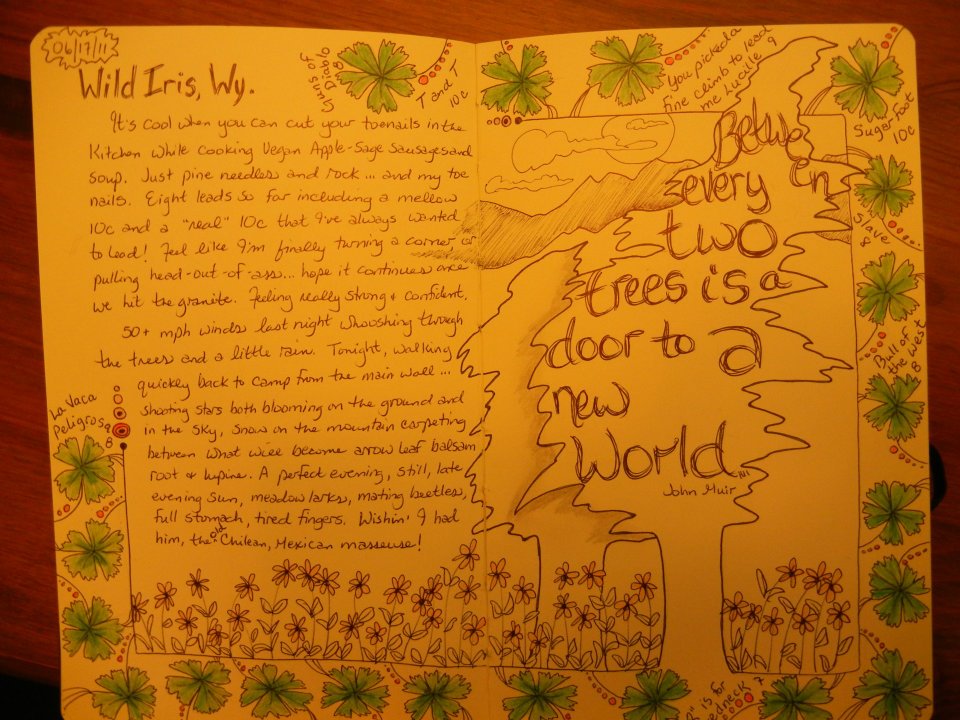 06/17/11
Wild Iris, Wy.
It's cool when you can cut your toenails in the
Kitchen while cooking Vegan Apple-Sage Sausages and
soup. Just pine needles and rock... and my toe
nails. Eight leads so far including a mellow
10c and a "real" 10c that I've always wanted
to lead! Feel like I'm finally turning a corner or
pulling head-out-of-ass... hope it continues once
we hit the granite. Feeling really strong & confident.
50+ mph winds last night whooshing through
the trees and a little rain. Tonight, walking
quickly back to camp from the main wall...
shooting stars both blooming on the ground and
in the sky, snow on the mountain carpeting
between what will become arrow leaf balsam
root & lupine. A perfect evening, still, late
evening sun, meadow larks, mating beetles,
full stomach, tired fingers. Wishin' I had
him, the old Chilean, Mexican masseuse!
La Vaca
Peligrosa
8
Guns of
Diablo
8
T and T
10c
You picked a
fine climb to lead
me Lucille 9
Sugar Foot
10c
Slave
8
Bull of
the West
8
" is for
Redneck 7
Between
every
two
trees is a
door to a
new
World
John Muir